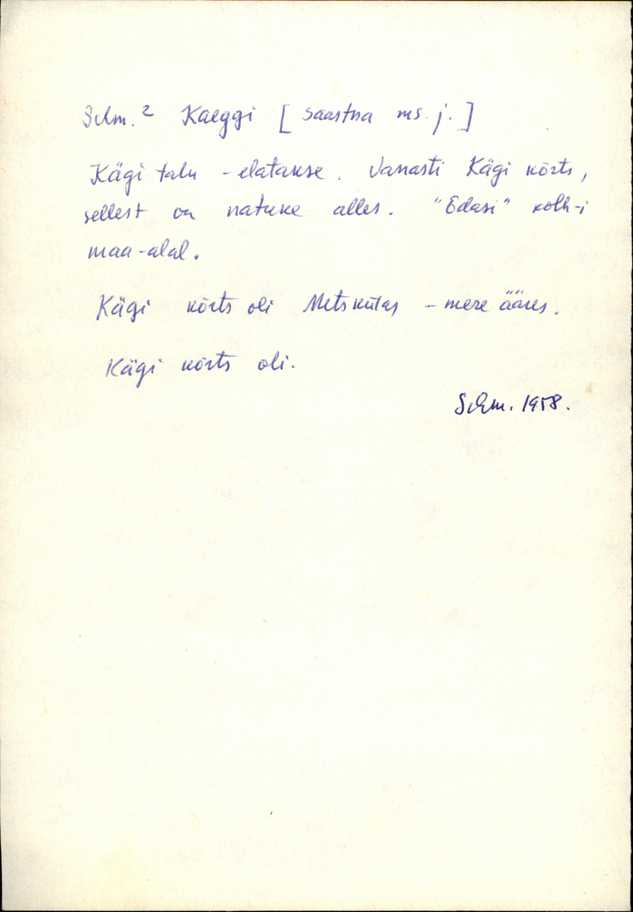 Schm.² Kaeggi [Saastna ms. j.]
Kägi talu - elatakse. Vanasti Kägi kõrts,
sellest on natuke alles. "Edasi" kolh-i
maa-alal.
Kägi kõrts oli Metskülas - mere ääres.
Kägi kõrts oli.
Schm. 1958.